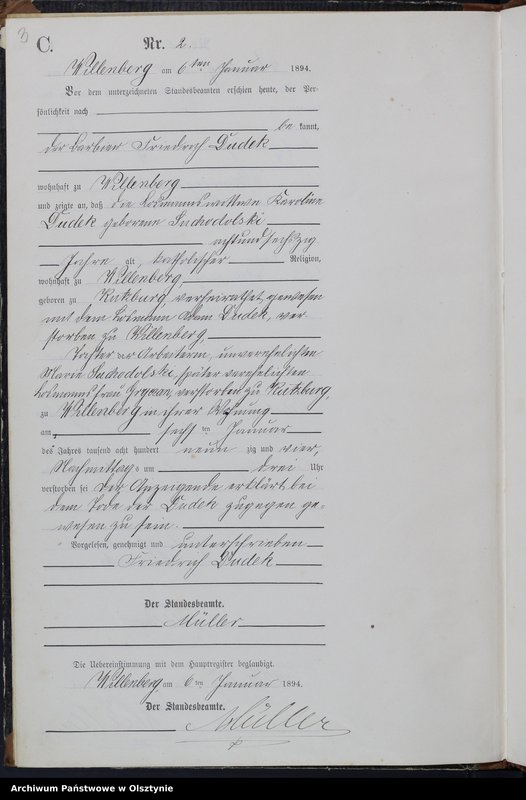 3
C.
Nr. 2.
Willenberg am 6ten Januar 1894.
Vor dem unterzeichneten Standesbeamten erschien heute, der Per-
sönlichkeit nach
be kannt,
der Barbier Friedrich Dudek
wohnhaft zu Willenberg
und zeigte an, daß die Losmannswittwe Karoline
Dudek geborene Suchodolski
achtundsechszig
Jahre alt, katholischer Religion,
wohnhaft zu Willenberg
geboren zu verheirathet gewesen
mit dem Losmann Adam Dudek, ver
storben zu Willenberg
Tochter der Arbeiterin, unverehelichten
Marie Suchodolski, später verehelichten
Losmannsfrau verstorben zu
zu Willenberg in ihrer Wohnung
am sechsten Januar
des Jahres tausend acht hundert neunzig und vier,
Nachmittags um drei Uhr
verstorben sei Der Anzeigende erklärt, bei
dem Tode der Dudek zugegen ge-
wesen zu sein.
Vorgelesen, genehmigt und unterschrieben
Friedrich Dudek
Der Standesbeamte.
Müller
Die Uebereinstimmung mit dem Hauptregister beglaubigt.
Willenberg am 6ten Januar 1894.
Der Standesbeamte.
Müller
Archiwum Państwowe w Olsztynie